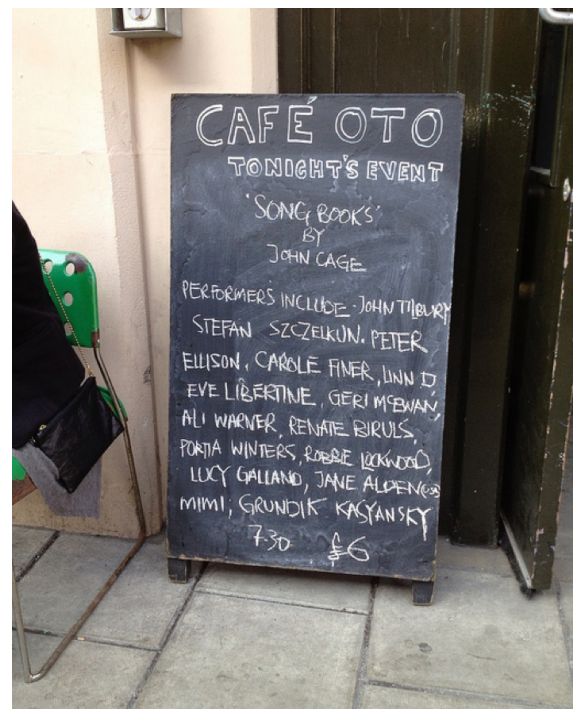 CAFÉ OTO
TONIGHT'S EVENT
'SONG BOOKS'
BY
JOHN CAGE
PERFORMERS INCLUDE · JOHN TILBURY
STEFAN SZCZELKUN. PETER
ELLISON, CAROLE FINER, LINN D
EVE LIBERTINE, GERI McEWAN,
ALI WARNER RENATE BIRULS,
PORTIA WINTERS, ROBBIE LOCKWOOD,
LUCY GALLAND, JANE ALDEN
MIMI, GRUNDIK KASYANSKY
7·30 £6